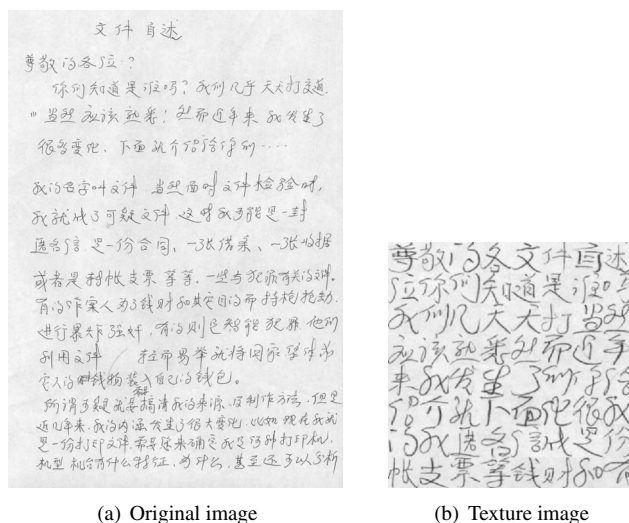 文件自述
尊敬的各位？
你们知道是谁吗？我们几乎天天打交道.
当然应该熟悉！然而近年来我发生了
很多变化，下面就介绍给你们……
我的名字叫文件 当然面对文件检验时，
我就成了可疑文件 这时我可能是一封
匿名信 是一份合同，一张借条、一张收据
或者是转帐支票等等，一些与犯罪有关的文件.
有的作案人为了钱财和其它目的而持枪抢劫.
进行暴炸强奸，有的则是智能犯罪 他们
利用文件 轻而易举就将国家
它人的钱物装入自己的钱包。
所谓可疑就是搞清我的来源、及制作方法，但是
近几年来，我的内涵发生了很大变化，比如现在我就
是一份打印文件 需要你来确定我是何种打印机
机型 机台有什么特征，为什么，甚至还可以分析
尊敬的各文件自述
位你们知道是谁吗
我们几天大打当然
应该熟悉然而近年
来我发生了们介给
绍介就下面化很我
的我匿名信成是份
帐支票等钱财和有
(a) Original image
(b) Texture image